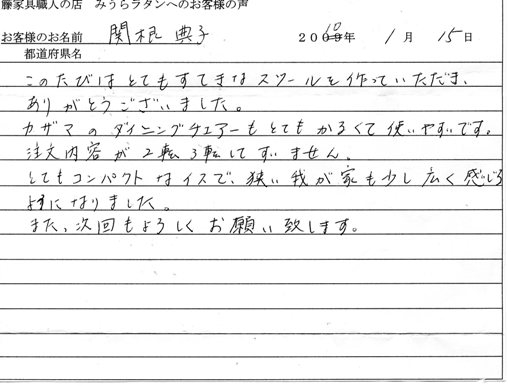 藤家具職人の店 みうらラタンへのお客様の声
お客様のお名前 関根 典子 2010年 1月 15日
都道府県名
このたびはとてもすてきなスツールを作っていただき、
ありがとうございました。
カザマのダイニングチェアーもとてもかるくて使いやすいです。
注文内容が2転3転してすいません。
とてもコンパクトなイスで、狭い我が家も少し広く感じる
ようになりました。
また、次回もよろしくお願い致します。